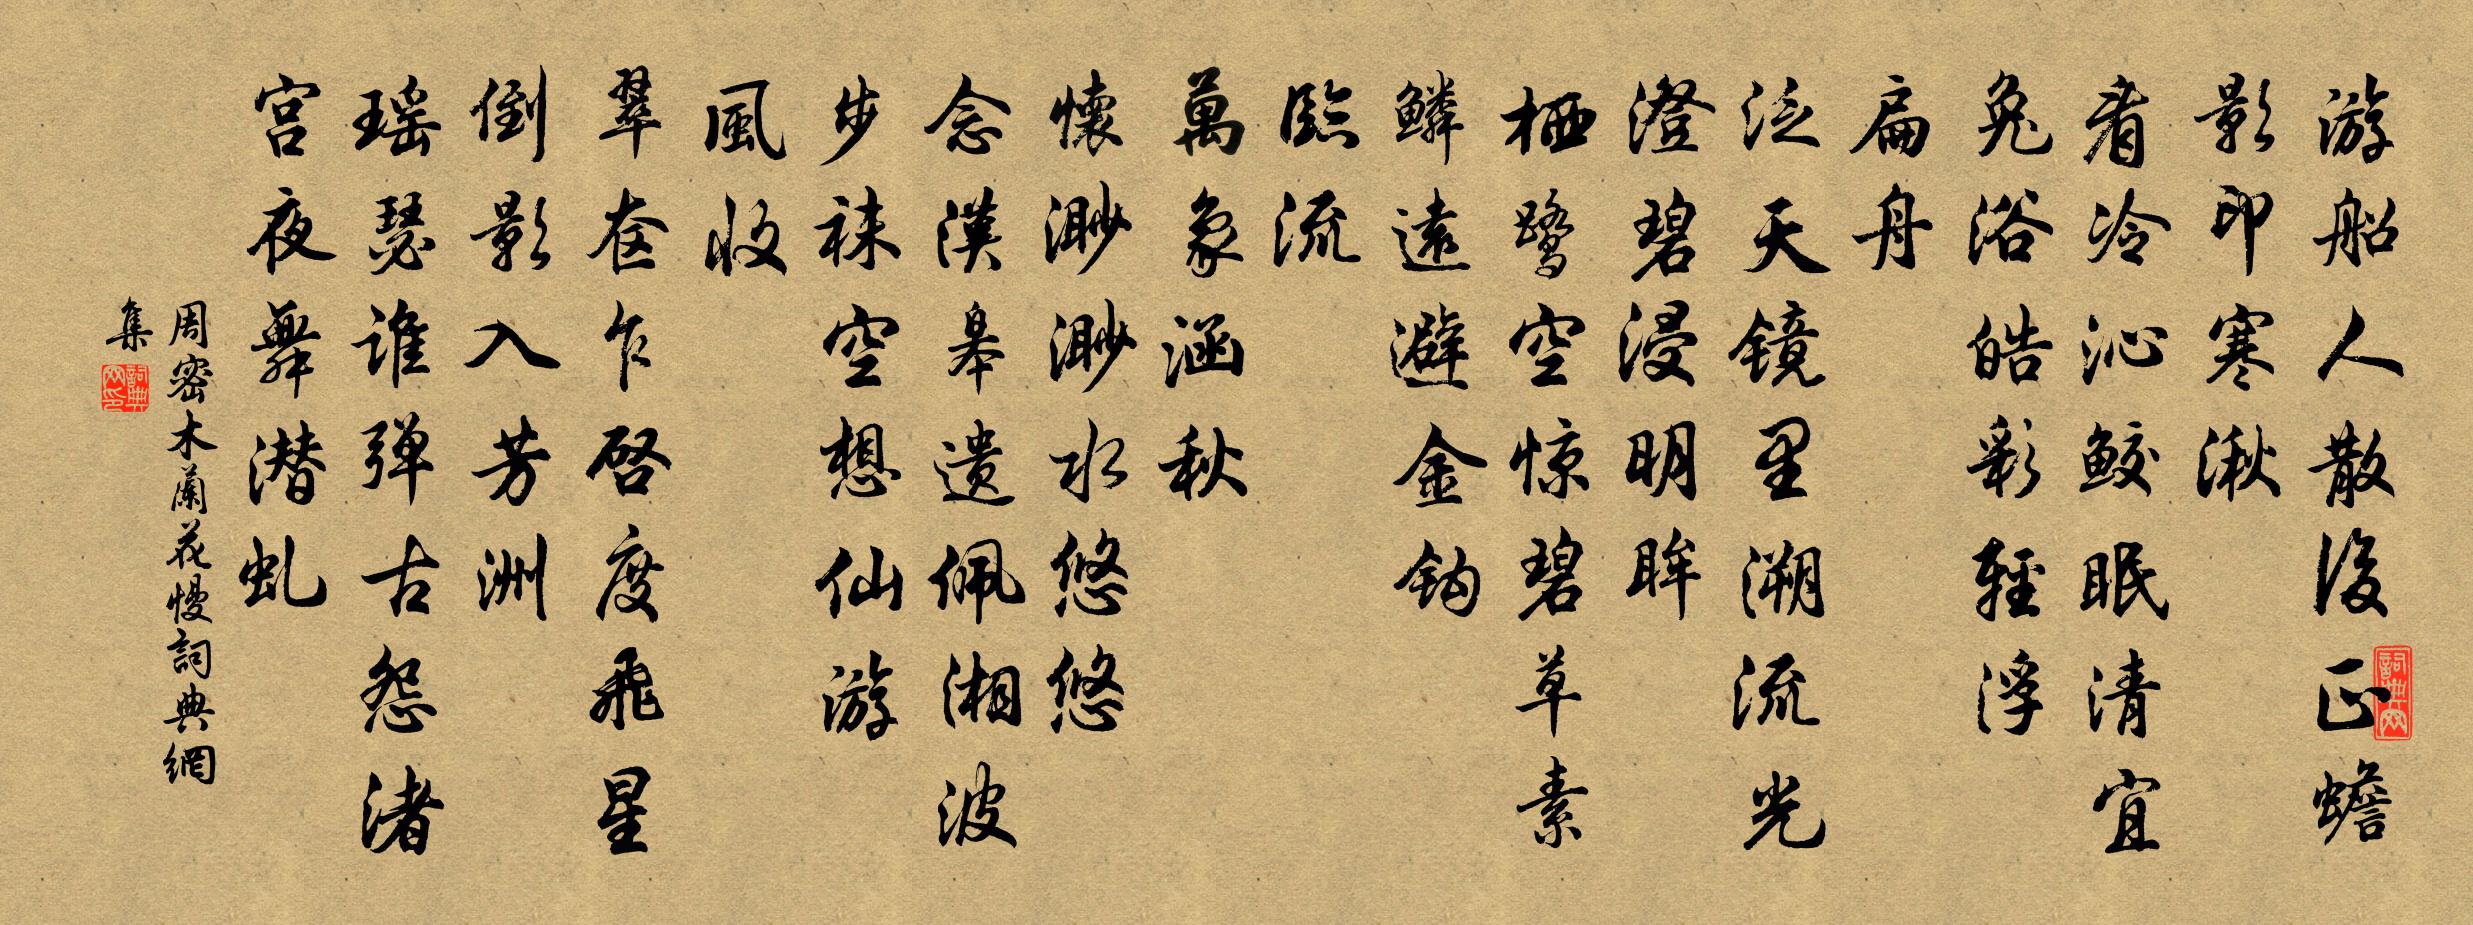 游船人散後正蟾
影印寒湫
看冷沁鲛眠清宜
兔浴皓彩輕浮
扁舟
泛天镜里溯流光
澄碧浸明眸
栖鹭空惊碧草素
鱗遠避金钩
臨流
萬象涵秋
懷渺渺水悠悠
念漢皋遗佩湘波
步袜空想仙游
風收
翠奁乍啓度飛星
倒影入芳洲
瑶瑟谁弹古怨渚
宫夜舞潜虬
周密木蘭花慢詞典網
集
詞典网
詞典网印